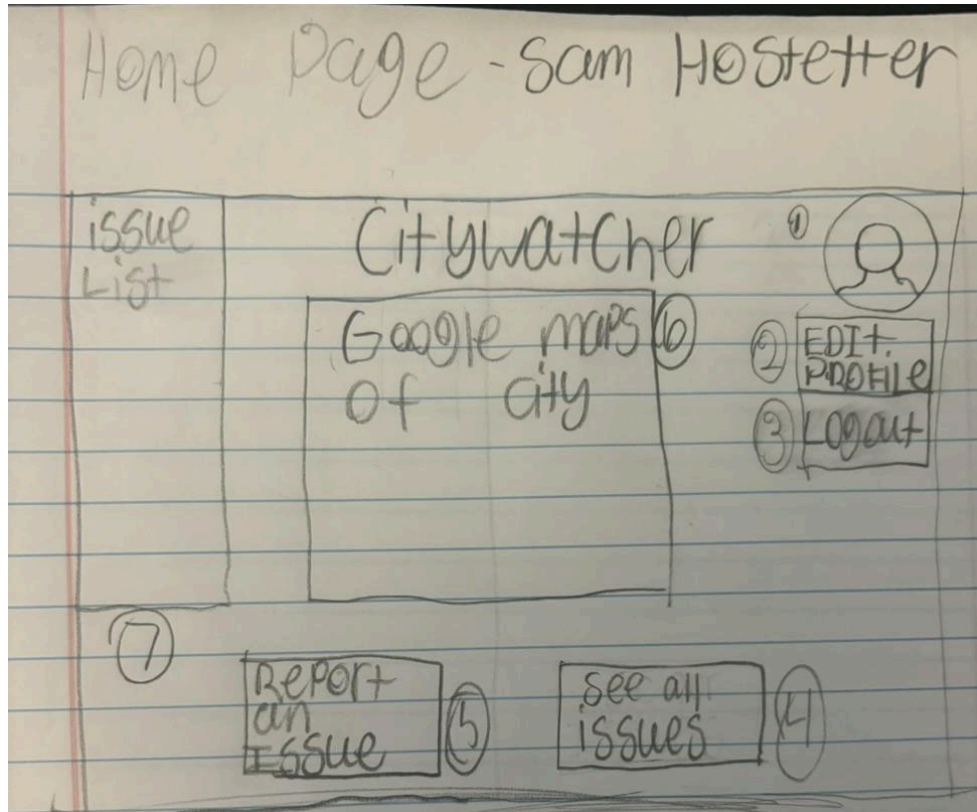 Home Page - Sam Hostetter
issue
List
Citywatcher
1
Google maps
of city
6
2
EDIt
PROFile
3
Logout
7
Report
an
Issue
5
see all
issues
4